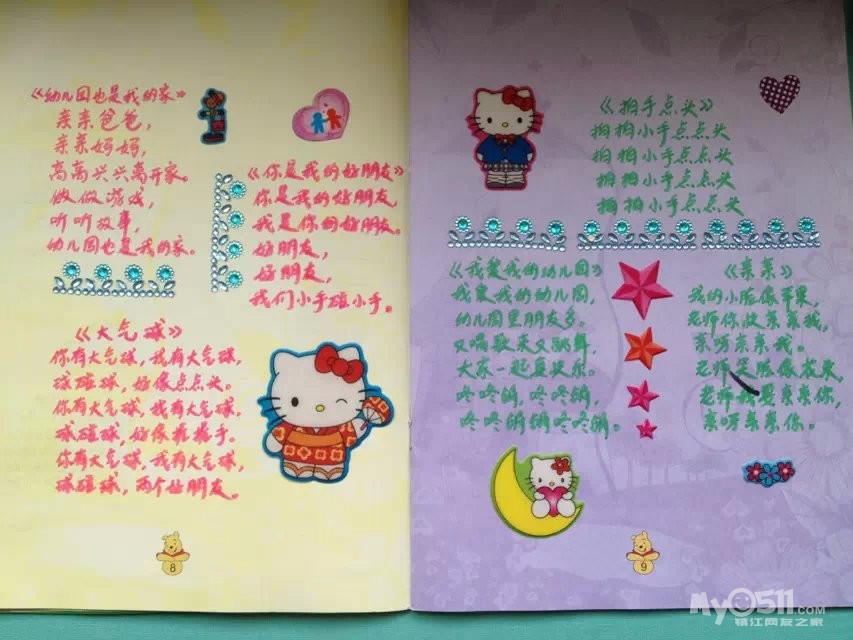 《幼儿园也是我的家》
亲亲爸爸，
亲亲妈妈，
高高兴兴离开家。
做做游戏，
听听故事，
幼儿园也是我的家。
《你是我的好朋友》
你是我的好朋友，
我是你的好朋友。
好朋友，
好朋友，
我们小手碰小手。
《大气球》
你有大气球，我有大气球，
球碰球，好像点点头。
你有大气球，我有大气球，
球碰球，好像握握手。
你有大气球，我有大气球，
球碰球，两个好朋友。
8
《拍手点头》
拍拍小手点点头
拍拍小手点点头
拍拍小手点点头
拍拍小手点点头
《我爱我的幼儿园》
我爱我的幼儿园，
幼儿园里朋友多。
又唱歌来又跳舞，
大家一起真快乐。
咚咚锵，咚咚锵，
咚咚锵锵咚咚锵。
《亲亲》
我的小脸像苹果，
老师你快亲亲我，
亲呀亲亲我。
老师笑脸像花朵，
老师我要亲亲你，
亲呀亲亲你。
9
My0511.COM
镇江网友之家